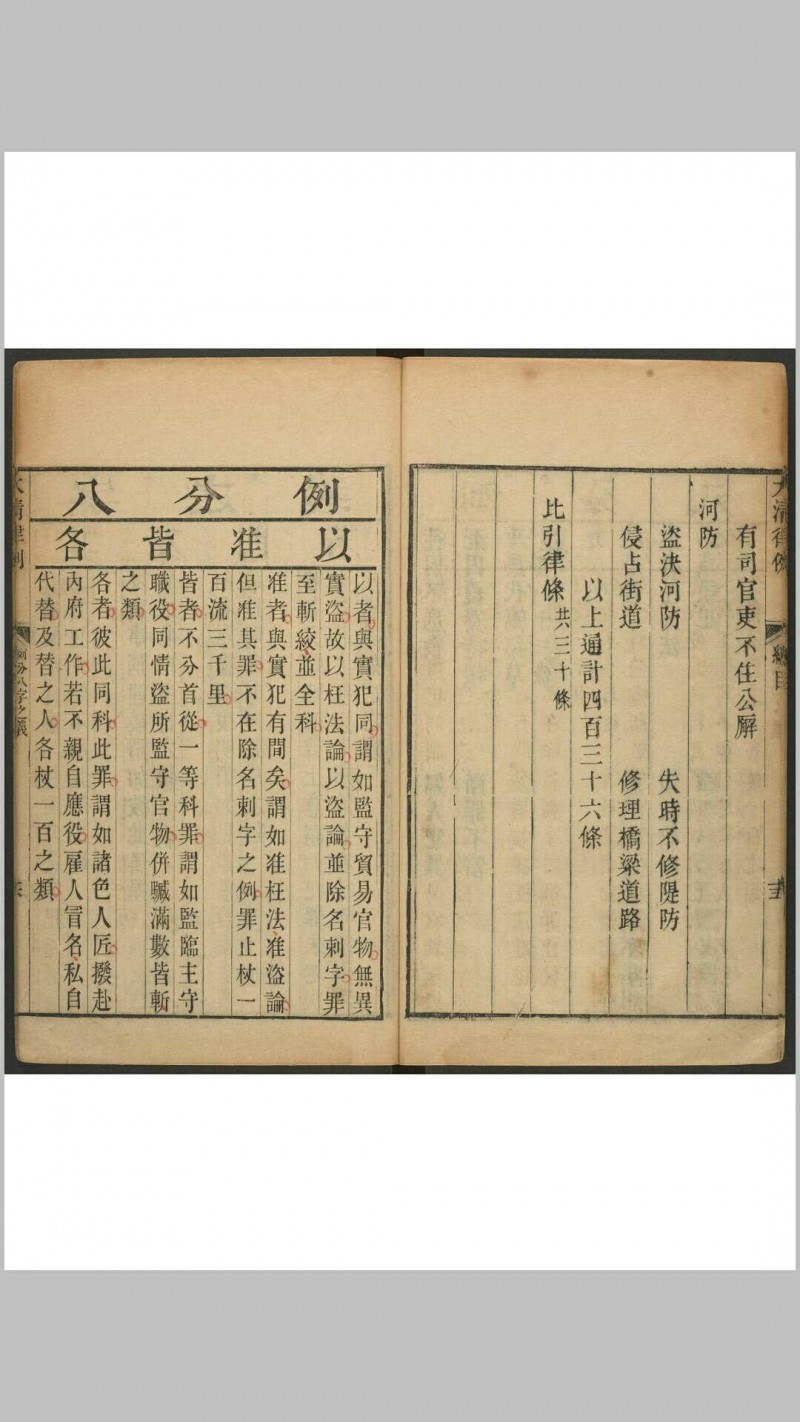 大清律例 總目
有司官吏不住公廨 修理橋梁道路
河防
盜決河防 失時不修隄防
侵占街道 修理橋梁道路
以上通計四百三十六條
比引律條 共三十條
例分八
以准皆各
以者與實犯同謂如監守貿易官物無異
實盜故以枉法論以盜論並除名刺字罪
至斬絞並全科
准者與實犯有間矣謂如准枉法准盜論
但准其罪不在除名刺字之例罪止杖一
百流三千里
皆者不分首從一等科罪謂如監臨主守
職役同情盜所監守官物併贓滿數皆斬
之類
各者彼此同科此罪謂如諸色人匠撥赴
內府工作若不親自應役雇人冒名私自
代替及替之人各杖一百之類
大清律例 例分八字之義